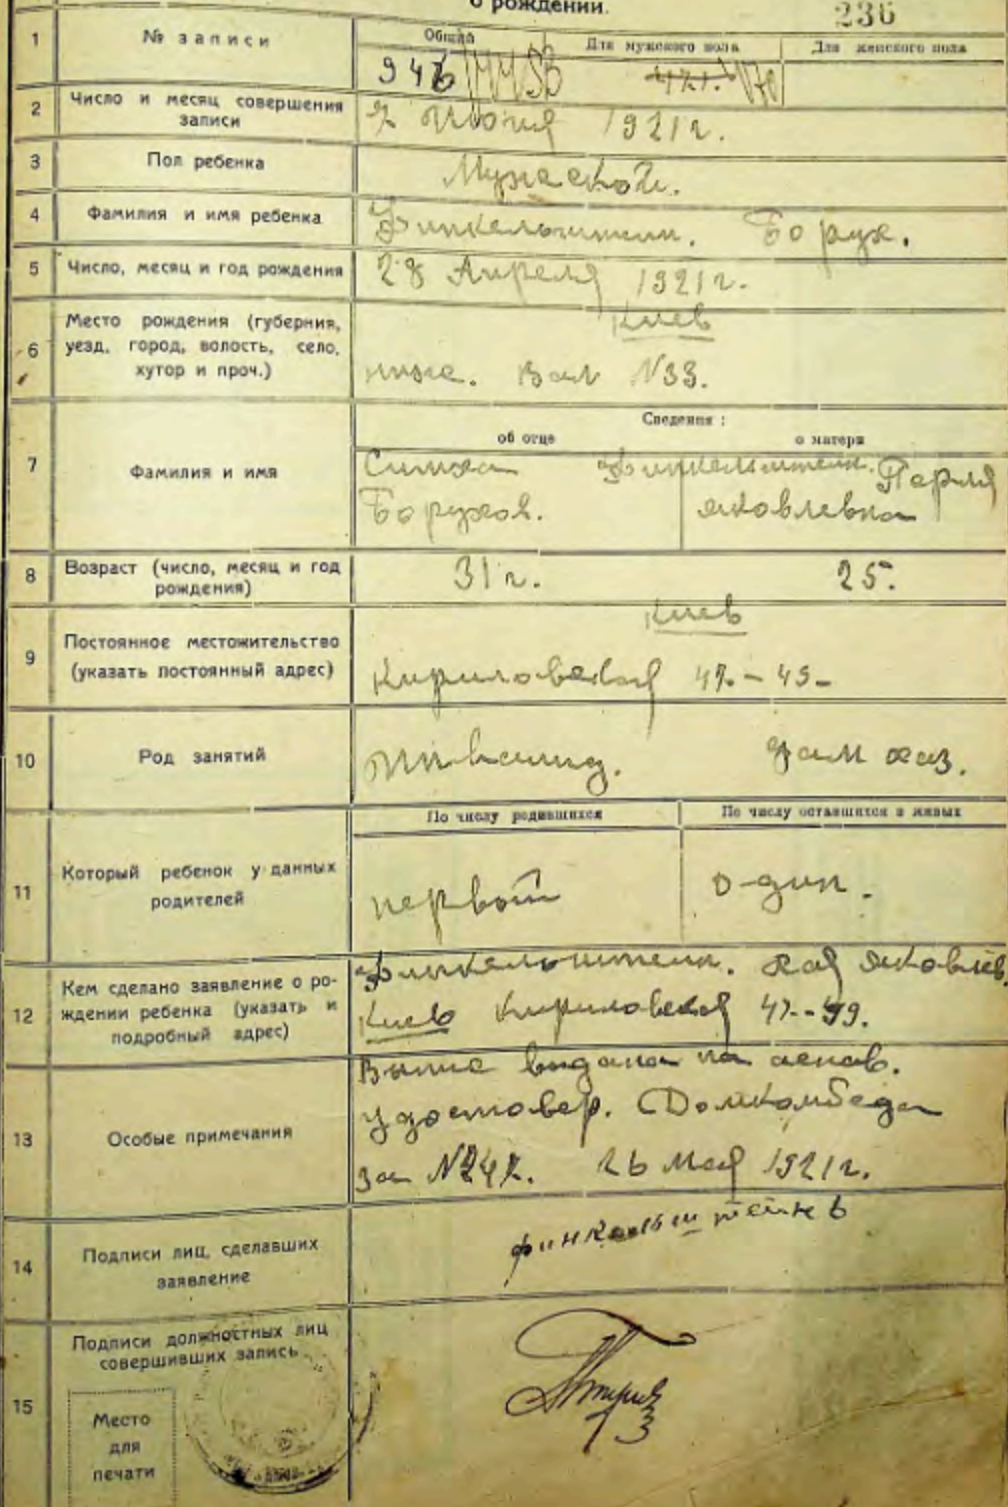 о рождении.
236
1
№ записи
Общий
Для мужского пола
Для женского пола
946
471.
2
Число и месяц совершения
записи
Июня 1921 г.
3
Пол ребенка
Мужеской.
4
Фамилия и имя ребенка
Финкельштейн. Борух.
5
Число, месяц и год рождения
28 Апреля 1921 г.
6
Место рождения (губерния,
уезд, город, волость, село,
хутор и проч.)
Киев
ниже. Вал N33.
7
Фамилия и имя
Сведения:
об отце
о матери
Симха Финкельштейн. Перля
Борухов. Яковлевна
8
Возраст (число, месяц и год
рождения)
31 г. 25.
9
Постоянное местожительство
(указать постоянный адрес)
Киев
Кириловская 47-49-
10
Род занятий
Инвалид. Дом хаз.
11
Который ребенок у данных
родителей
По числу родившихся
По числу оставшихся в живых
первой
один.
12
Кем сделано заявление о ро-
ждении ребенка (указать и
подробный адрес)
Финкельштейн. Яковлев.
Киев Кириловская 47-49.
13
Особые примечания
Выпис видана на основ.
удостовер. Домкомбеда
за N247. 26 Мая 1921 г.
14
Подписи лиц, сделавших
заявление
Финкельштейнъ
15
Подписи должностных лиц
совершивших запись
Место
для
печати